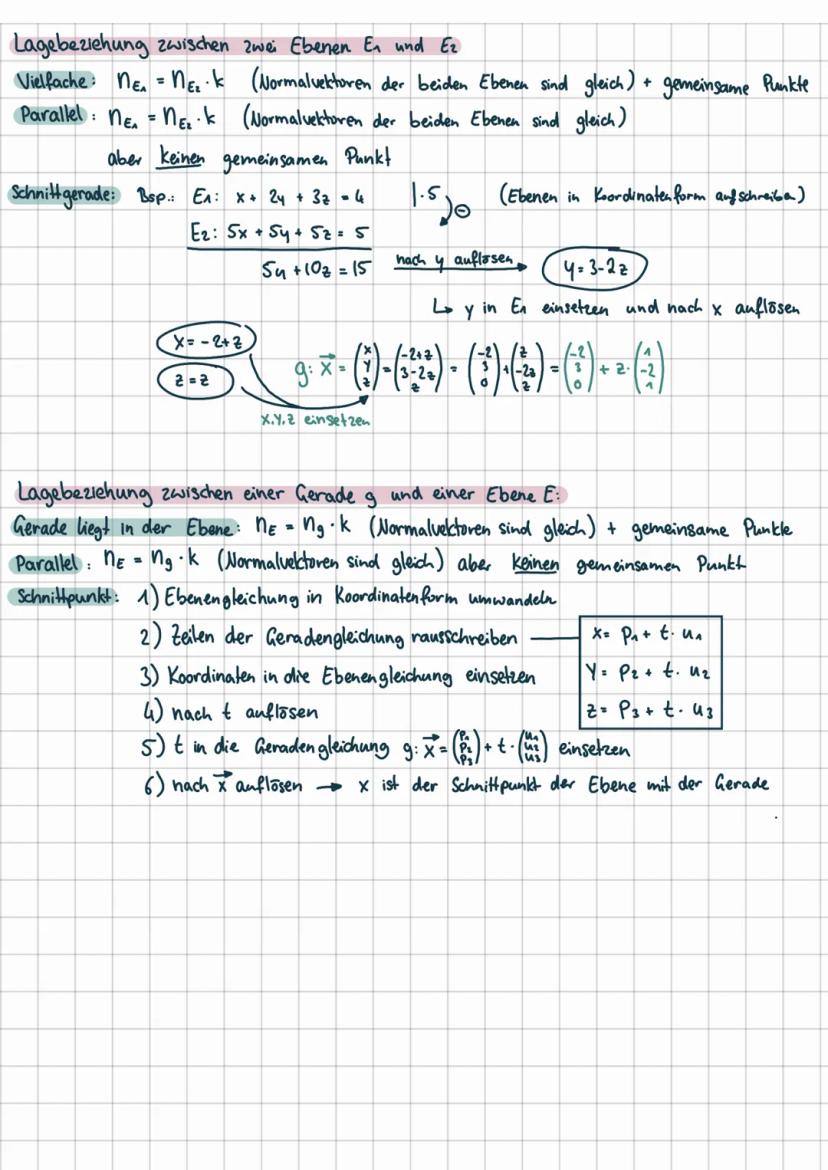 Lagebeziehung zwischen zwei Ebenen E₁ und E₂
Vielfache: n_E₁ = n_E₂ · k (Normalvektoren der beiden Ebenen sind gleich) + gemeinsame Punkte
Parallel: n_E₁ = n_E₂ · k (Normalvektoren der beiden Ebenen sind gleich)
aber keinen gemeinsamen Punkt
Schnittgerade: Bsp.: E₁: x + 2y + 3z = 4 |·5 ⊖ (Ebenen in Koordinatenform aufschreiben)
E₂: 5x + 5y + 5z = 5
5y + 10z = 15 nach y auflösen → y = 3-2z
↳ y in E₁ einsetzen und nach x auflösen
x = -2+z
z = z
g: x⃗ = (x y z) = (-2+z 3-2z z) = (-2 3 0) + (z -2z z) = (-2 3 0) + z · (1 -2 1)
x,y,z einsetzen
Lagebeziehung zwischen einer Gerade g und einer Ebene E:
Gerade liegt in der Ebene: n_E = n_g · k (Normalvektoren sind gleich) + gemeinsame Punkte
Parallel: n_E = n_g · k (Normalvektoren sind gleich) aber keinen gemeinsamen Punkt
Schnittpunkt: 1) Ebenengleichung in Koordinatenform umwandeln
2) Zeilen der Geradengleichung rausschreiben
x = p₁ + t · u₁
y = p₂ + t · u₂
z = p₃ + t · u₃
3) Koordinaten in die Ebenengleichung einsetzen
4) nach t auflösen
5) t in die Geradengleichung g: x⃗ = (p₁ p₂ p₃) + t · (u₁ u₂ u₃) einsetzen
6) nach x⃗ auflösen → x ist der Schnittpunkt der Ebene mit der Gerade